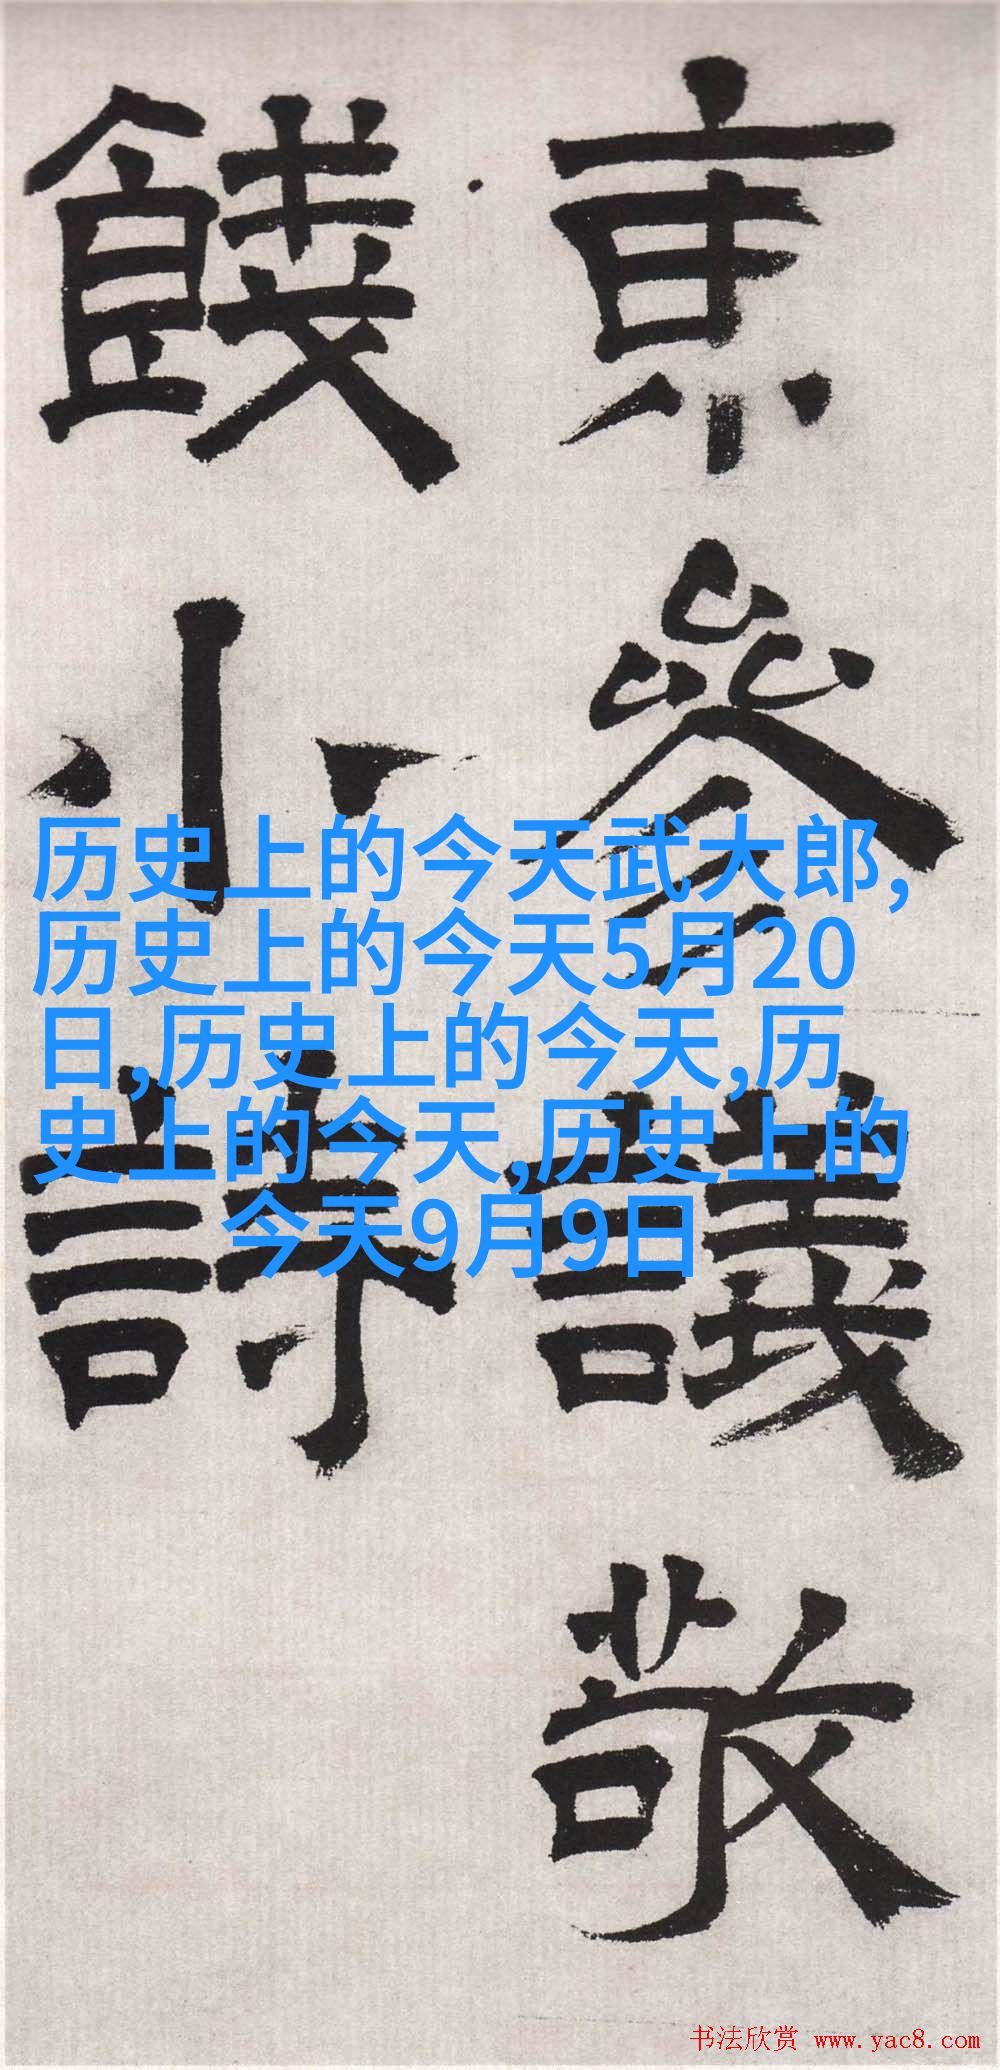 京參議敬
餞小詩
历史上的今天武大郎,
历史上的今天5月20
日,历史上的今天,历
史上的今天,历史上的
今天9月9日
书法欣赏 www.yac8.com